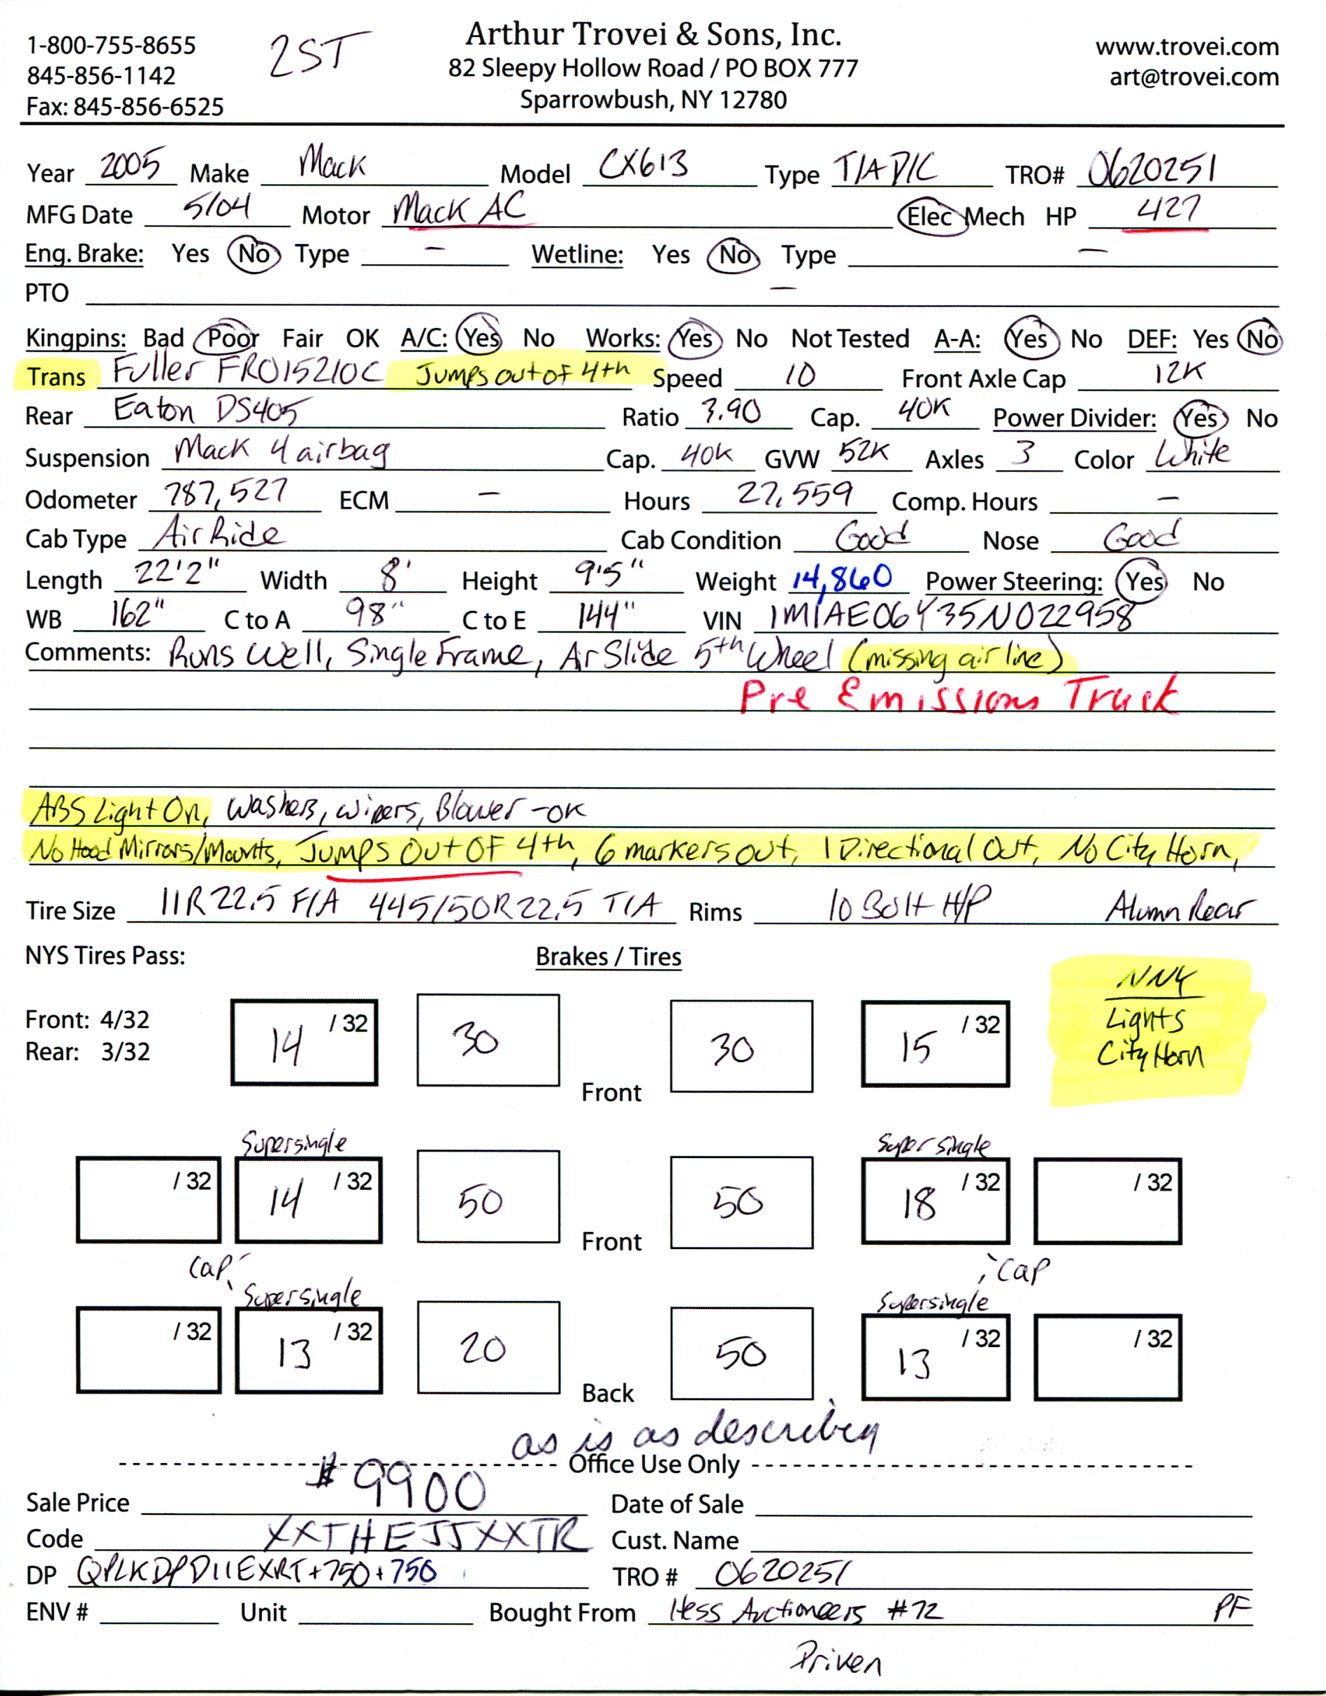 1-800-755-8655
845-856-1142
Fax: 845-856-6525
2ST
Arthur Trovei & Sons, Inc.
82 Sleepy Hollow Road / PO BOX 777
Sparrowbush, NY 12780
www.trovei.com
art@trovei.com
Year 2005 Make Mack Model CX613 Type T/A D/C TRO# 0620251
MFG Date 5/04 Motor Mack AC Elec Mech HP 427
Eng. Brake: Yes No Type - Wetline: Yes No Type -
PTO -
Kingpins: Bad Poor Fair OK A/C: Yes No Works: Yes No Not Tested A-A: Yes No DEF: Yes No
Trans Fuller FRO15210C Jumps out of 4th Speed 10 Front Axle Cap 12K
Rear Eaton DS405 Ratio 3.90 Cap. 40K Power Divider: Yes No
Suspension Mack 4 airbag Cap. 40K GVW 52K Axles 3 Color White
Odometer 787,527 ECM - Hours 27,559 Comp. Hours -
Cab Type Air Ride Cab Condition Good Nose Good
Length 22'2" Width 8' Height 9'5" Weight 14,860 Power Steering: Yes No
WB 162" C to A 98" C to E 144" VIN 1M1AE06Y35N022958
Comments: Runs Well, Single Frame, Air Slide 5th Wheel (missing air line)
Pre Emissions Truck
ABS Light On, Washers, wipers, Blower - OK
No Hood Mirrors/Mounts, Jumps Out OF 4th, 6 markers out, 1 Directional Out, No City Horn,
Tire Size 11R22.5 F/A 445/50R22.5 T/A Rims 10 Bolt H/P Alumn Rear
NYS Tires Pass: Brakes / Tires
NNY
Lights
City Horn
Front: 4/32
Rear: 3/32
14 /32 30 Front 30 15 /32
Supersingle Supersingle
/32 14 /32 50 Front 50 18 /32 /32
Cap Cap
Supersingle Supersingle
/32 13 /32 20 Back 50 13 /32 /32
as is as described
Office Use Only
Sale Price $9900 Date of Sale
Code XXTHEJJXXTR Cust. Name
DP QPLKDPD11EXRT+750+750 TRO # 0620251
ENV # Unit Bought From Hess Auctioneers #72 PF
Driven